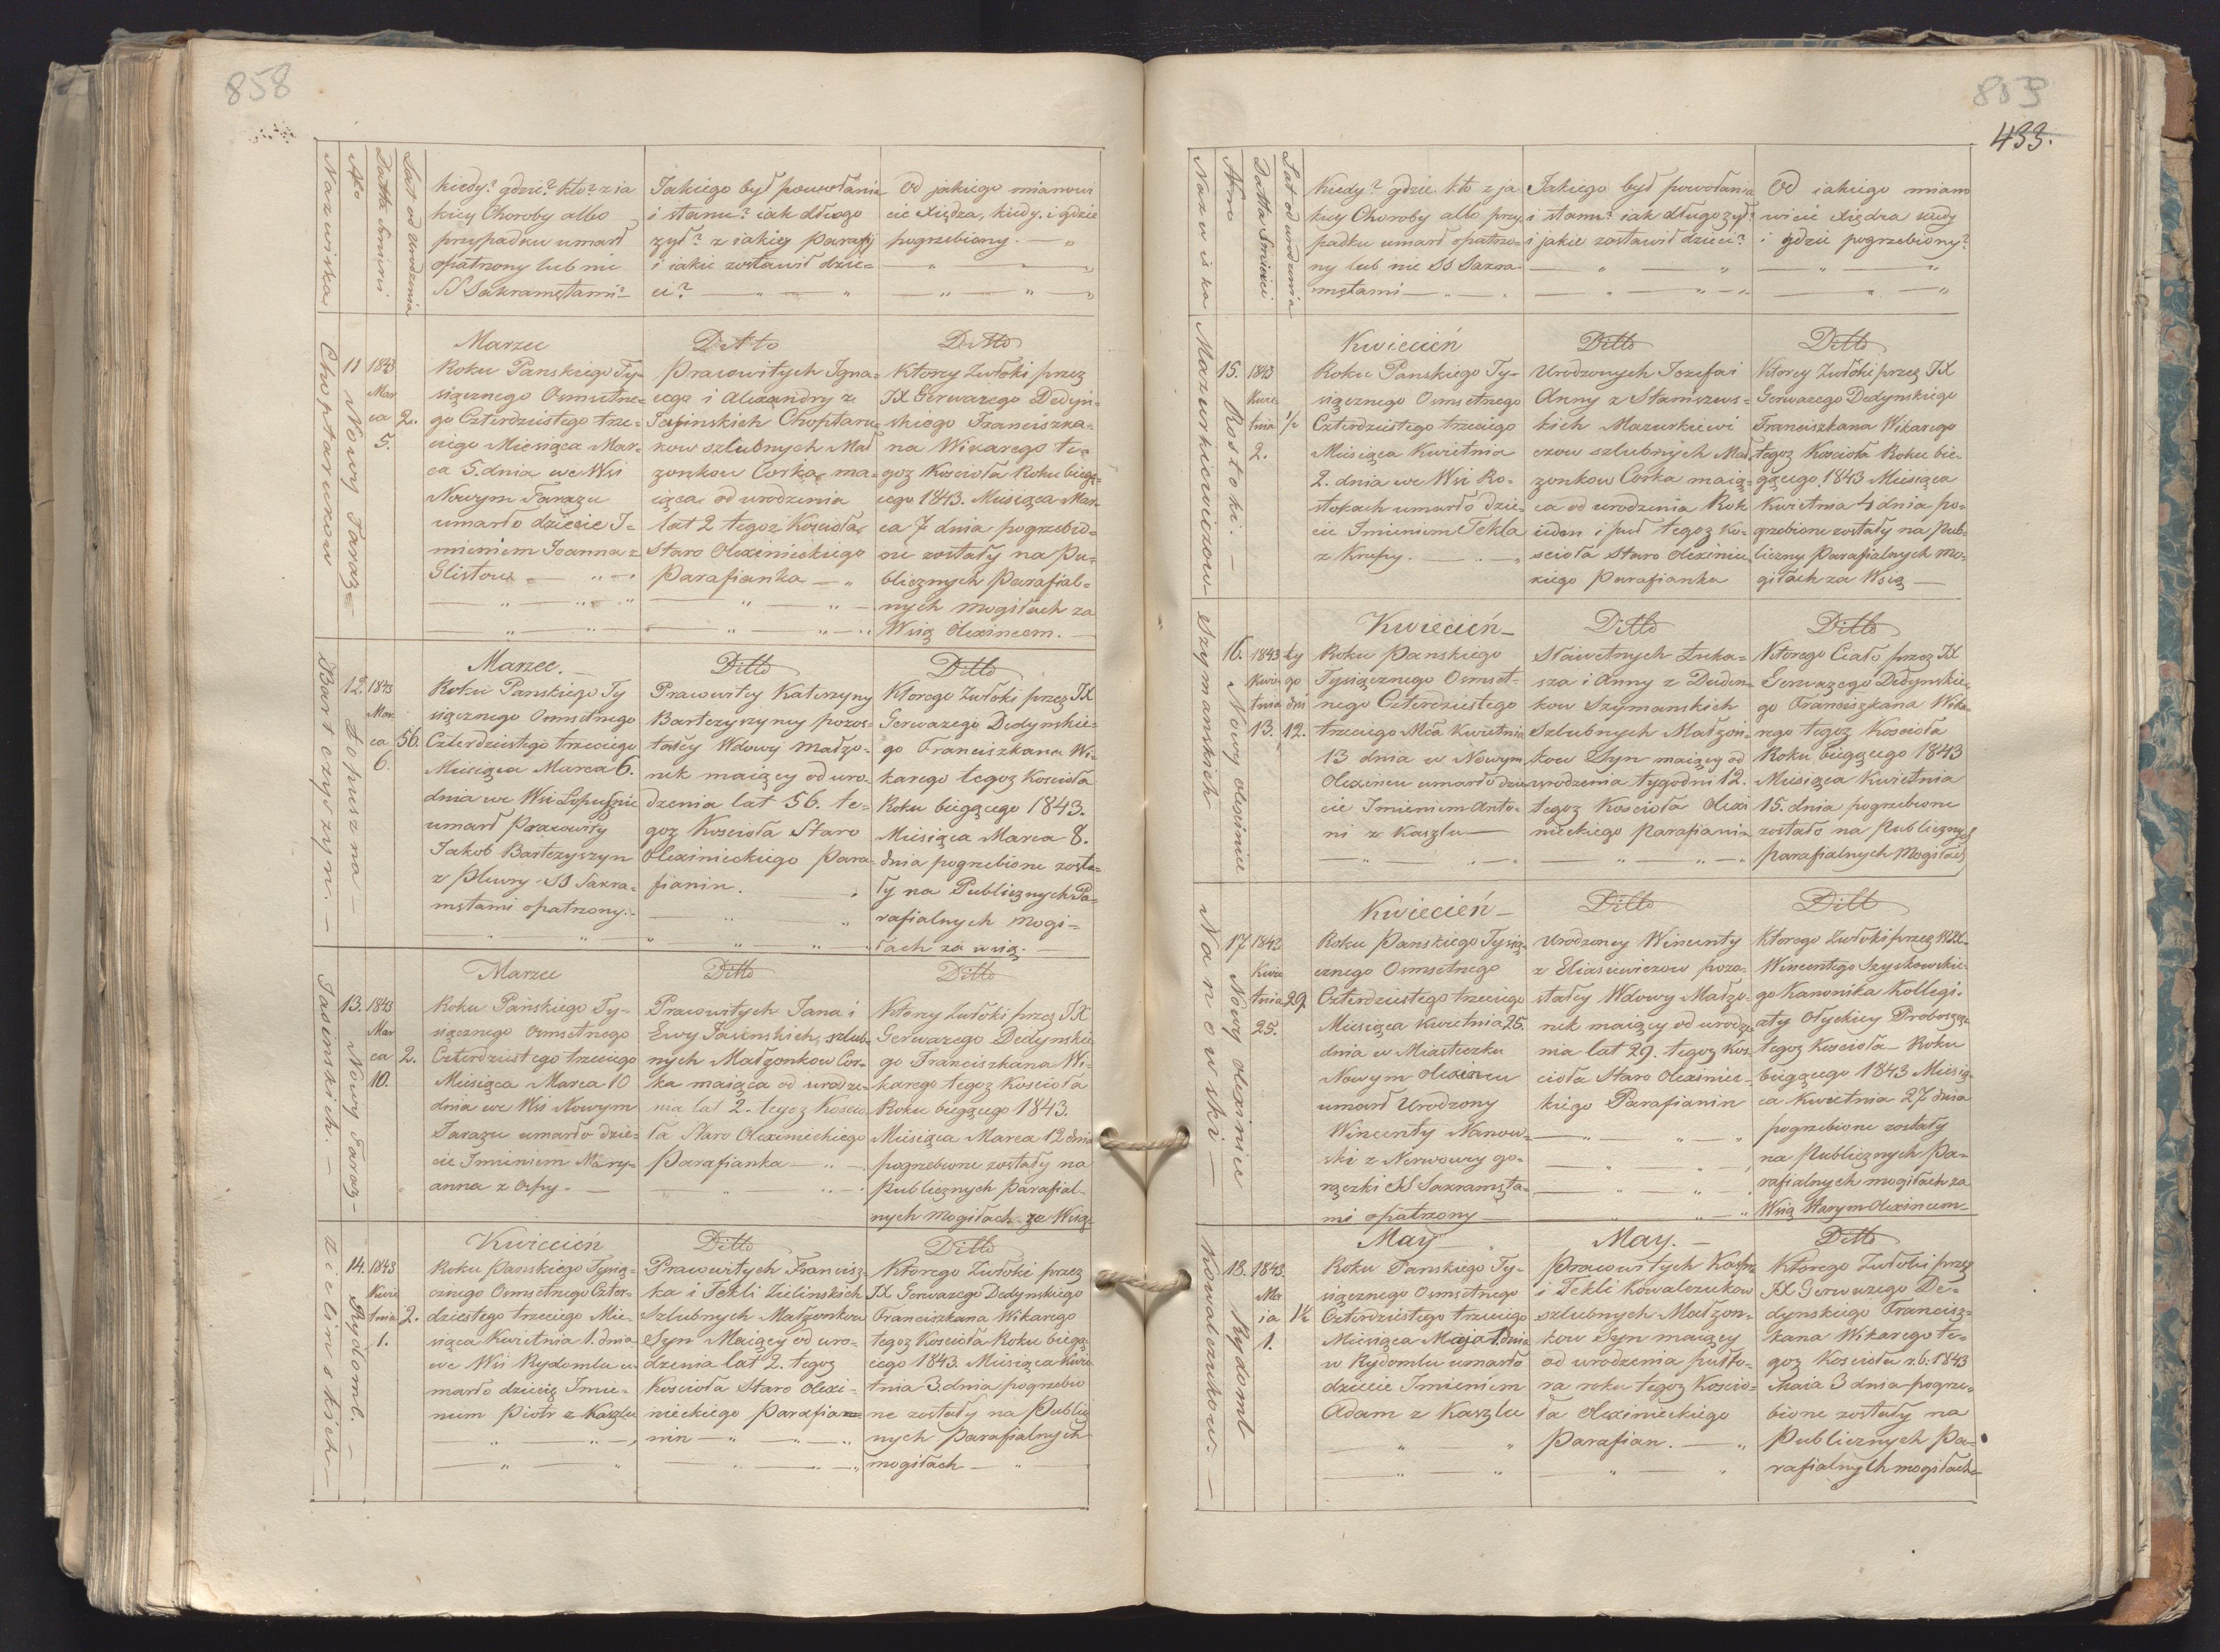 858
Nazwiska
Nro
Datta Smierci
Lat od urodzenia
kiedy? gdzie? kto? z ja
kiey Choroby albo
przypadku umarł
opatrzony lub nie
SS Sakramętami
Jakiego był powołania
i stanu? iak długo
zył? z iakiey Parafij
i iakie zostawił dzie=
ci?
Od jakiego mianowi
cie Xiędza, kiedy i gdzie
pogrzebiony.
Choptariukow
11 Nowy Taraz
1843
Mar
ca
5.
2.
Marzec
Roku Panskiego Ty=
siącznego Osmsetne=
go Czterdziestego trze=
ciego Miesiąca Mar=
ca 5. dnia we Wsi
Nowym Tarazu
umarło dziecie I=
mieniem Joanna z
Glistow
Ditto
Pracowitych Igna=
cego i Alexandry z
Choptariu=
kow szlubnych Mał
zonkow Corka, ma=
iąca od urodzenia
lat 2 tegoz Kościoła
Staro Olexinieckiego
Parafianka
Ditto
Ktorey Zwłoki przez
JX Gerwazego Dedyn=
skiego Franciszka=
na Wikarego te=
goz Kościoła Roku biegą=
cego 1843. Miesiąca Mar=
ca 7 dnia pogrzebio=
ne zostały na Pu=
blicznych Parafial=
nych mogiłach za
Wsią Olexincem.
Bartczyszyn.
12. Łopuszna
1843
Mar
ca
6.
56.
Marzec.
Roku Panskiego Ty
siącznego Osmsetnego
Czterdziestego trzeciego
Miesiąca Marca 6.
dnia we Wsi Łopusznie
umarł Pracowity
Jakob Bartczyszyn
z Plewry SS Sakra=
mętami opatrzony.
Ditto
Pracowitey Katerzyny
Bartczyszyney pozos=
tałey Wdowy Małzo=
nek maiący od uro=
dzenia lat 56. te=
goz Kosciola Staro
Olexinieckiego Para=
fianin.
Ditto
Ktorego Zwłoki przez JX
Gerwazego Dedynskie=
go Franciszkana Wi=
karego tegoz Kosciola
Roku biegącego 1843.
Miesiąca Marca 8.
dnia pogrzebione zosta=
ły na Publicznych Pa=
rafialnych Mogi=
łach za wsią.
Jasinskich.
13. Nowy Taraz
1843
Mar
ca
10.
2.
Marzec
Roku Pańskiego Ty=
siącznego Osmsetnego
Czterdziestego trzeciego
Miesiąca Marca 10
dnia we Wsi Nowym
Tarazu umarło dzie=
cie Imieniem Mary=
anna z Ospy.
Ditto
Pracowitych Jana i
Ewy Jasinskich, szlub=
nych Małzonkow Cor=
ka maiąca od urodze=
nia lat 2. tegoz Koscio
ła Staro Olexinieckiego
Parafianka
Ditto
Ktorey Zwłoki przez JX
Gerwazego Dedynskie
go Franciszkana Wi=
karego tegoz Kosciola
Roku biegącego 1843.
Miesiąca Marca 12 dnia
pogrzebione zostały na
Publicznych Parafial=
nych Mogiłach za Wsią
Zielinskich
14. Rydoml
1843
Kwie
tnia
1.
2.
Kwiecień
Roku Panskiego Tysią=
cznego Osmsetnego Czter=
dziestego trzeciego Mie=
siąca Kwietnia 1. dnia
we Wsi Rydomlu u=
marło dziecię Imie=
niem Piotr z Kaszlu
Ditto
Pracowitych Francisz=
ka i Tekli Zielinskich
Szlubnych Małzonkow
Syn Maiący od uro=
dzenia lat 2. tegoz
Kosciola Staro Olexi=
nieckiego Parafia=
nin
Ditto
Ktorego Zwłoki przez
JX Gerwazego Dedynskiego
Franciszkana Wikarego
tegoz Kosciola Roku biegą
cego 1843. Miesiąca Kwie
tnia 3. dnia pogrzebio
ne zostały na Public
nych Parafialnych
mogiłach
433.
Nazwiska
Nro
Datta Smierci
Lat od urodzenia
Kiedy? gdzie. kto z ja
kiey Choroby albo przy=
padku umarł opatrzo=
ny lub nie SS Sakra=
mętami
Jakiego był powołania
i stanu? iak długo zył?
i jakie zostawił dzieci?
Od iakiego miano
wicie Xiędza kiedy
i gdzie pogrzebiony?
Mazurkiewiczow
15. Rostoki.
1843
Kwie
tnia
2.
1/2
Kwiecień
Roku Panskiego Ty=
siącznego Osmsetnego
Czterdziestego trzeciego
Miesiąca Kwietnia
2. dnia we Wsi Ro=
stokach umarło dzie=
cie Imieniem Tekla
z Krupy.
Ditto
Urodzonych Jozefa i
Anny z Staniszews=
kich Mazurkiewi
czow szlubnych Mał=
zonkow Corka maią=
ca od urodzenia Rok
ieden i puł tegoz Ko=
sciola Staro Olexiniec
kiego Parafianka
Ditto
Ktorey Zwłoki przez JX
Gerwazego Dedynskiego
Franciszkana Wikarego
tegoz Kosciola Roku bie=
gącego 1843 Miesiąca
Kwietnia 4 dnia po=
grzebione zostały na Pub=
liczny Parafialnych Mo=
giłach za Wsią
Szymanskich
16. Nowy Olexiniec
1843
Kwie
tnia
13.
ty
go
dni
12.
Kwiecień
Roku Panskiego
Tysiącznego Osmset=
nego Czterdziestego
trzeciego Mca Kwietnia
13 dnia w Nowym
Olexincu umarło dzie
cie Imieniem Anto=
ni z Kaszlu
Ditto
Sławetnych Łuka=
sza i Anny z Duden=
kow Szymanskich
Szlubnych Małzon=
kow Syn maiący od
urodzenia tygodni 12.
tegoz Kosciola Olexi
nieckiego parafianin
Ditto
Ktorego Ciało przez JX
Gerwazego Dedynskie=
go Franciszkana Wika=
rego tegoz Kosciola
Roku biegącego 1843
Miesiąca Kwietnia
15. dnia pogrzebione
zostało na Publicznych
parafialnych Mogiłach
Nanowski
17 Nowy Olexiniec
1843
Kwie
tnia
25.
29
Kwiecień
Roku Panskiego Tysią=
cznego Osmsetnego
Czterdziestego trzeciego
Miesiąca Kwietnia 25.
dnia w Miasteczku
Nowym Olexincu
umarł Urodzony
Wincenty Nanow=
ski z Nerwowey go=
rączki SS Sakramęta=
mi opatrzony
Ditto
Urodzoney Wincenty
z Eliasiewiczow pozo=
stałey Wdowy Małzo=
nek maiący od urodze
nia lat 29. tegoz Kos=
cioła Staro Olexiniec=
kiego Parafianin
Ditto
Ktorego Zwłoki przez
Wincentego Szyskowskie=
go Kanonika Kollegi=
aty Ołyckiey Proboszcza
tegoz Kosciola Roku
biegącego 1843 Miesią=
ca Kwietnia 27 dnia
pogrzebione zostały
na Publicznych Pa=
rafialnych mogiłach za
Wsią Starym Olexincem
Kowalczukow.
18. Rydoml
1843.
Ma
ia
1.
1 1/2
May
Roku Panskiego Ty=
siącznego Osmsetnego
Czterdziestego trzeciego
Miesiąca Maja 1. dnia
w Rydomlu umarło
dziecie Imieniem
Adam z Kaszlu
May.
Pracowitych Kaspra
i Tekli Kowalczukow
szlubnych Małzon=
kow Syn maiący
od urodzenia pułto=
ra roku tegoz Koscio=
ła Olexinieckiego
Parafian.
Ditto
Ktorego Zwłoki przez
JX Gerwazego De=
dynskiego Francisz=
kana Wikarego te=
goz Kosciola r.b. 1843
Maia 3 dnia pogrze=
bione zostały na
Publicznych Pa=
rafialnych mogiłach